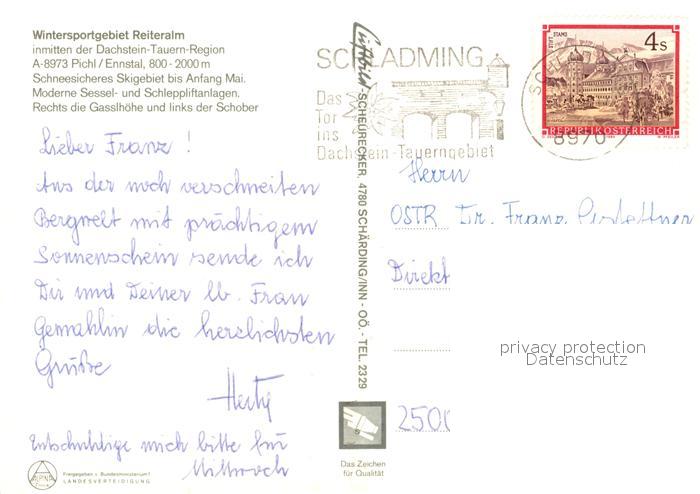 Wintersportgebiet Reiteralm
inmitten der Dachstein-Tauern-Region
A-8973 Pichl / Ennstal, 800 - 2000 m
Schneesicheres Skigebiet bis Anfang Mai.
Moderne Sessel- und Schleppliftanlagen.
Rechts die Gasslhöhe und links der Schober
Lieber Franz !
Aus der noch verschneiten
Bergwelt mit prächtigem
Sonnenschein sende ich
Dir und Deiner lb. Frau
Gemahlin die herzlichsten
Grüße
Entschuldige mich bitte für
Mittwoch
ALPINA
Freigegeben v. Bundesministerium f.
LANDESVERTEIDIGUNG
Luftbild-SCHEURECKER, 4780 SCHÄRDING/INN - OÖ. - TEL. 2329
Das Zeichen
für Qualität
SCHLADMING
Das
Tor
ins
Dachstein-Tauerngebiet
8970
STIFT STAMS
4 S
REPUBLIK ÖSTERREICH
Herrn
OSTR Dr. Franz
Direkt
250
privacy protection
Datenschutz